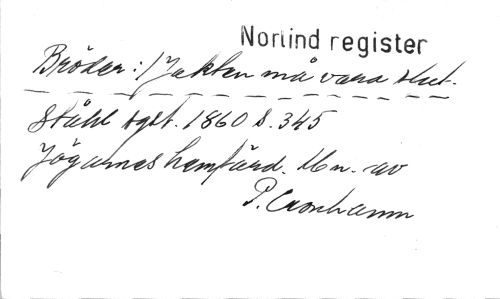 Norlind register
Bröder: / Jakten må vara slut.
Ståhl sgst. 1860 s. 345
Jägarnes hemfärd. Mn. av
P. Cronhamn